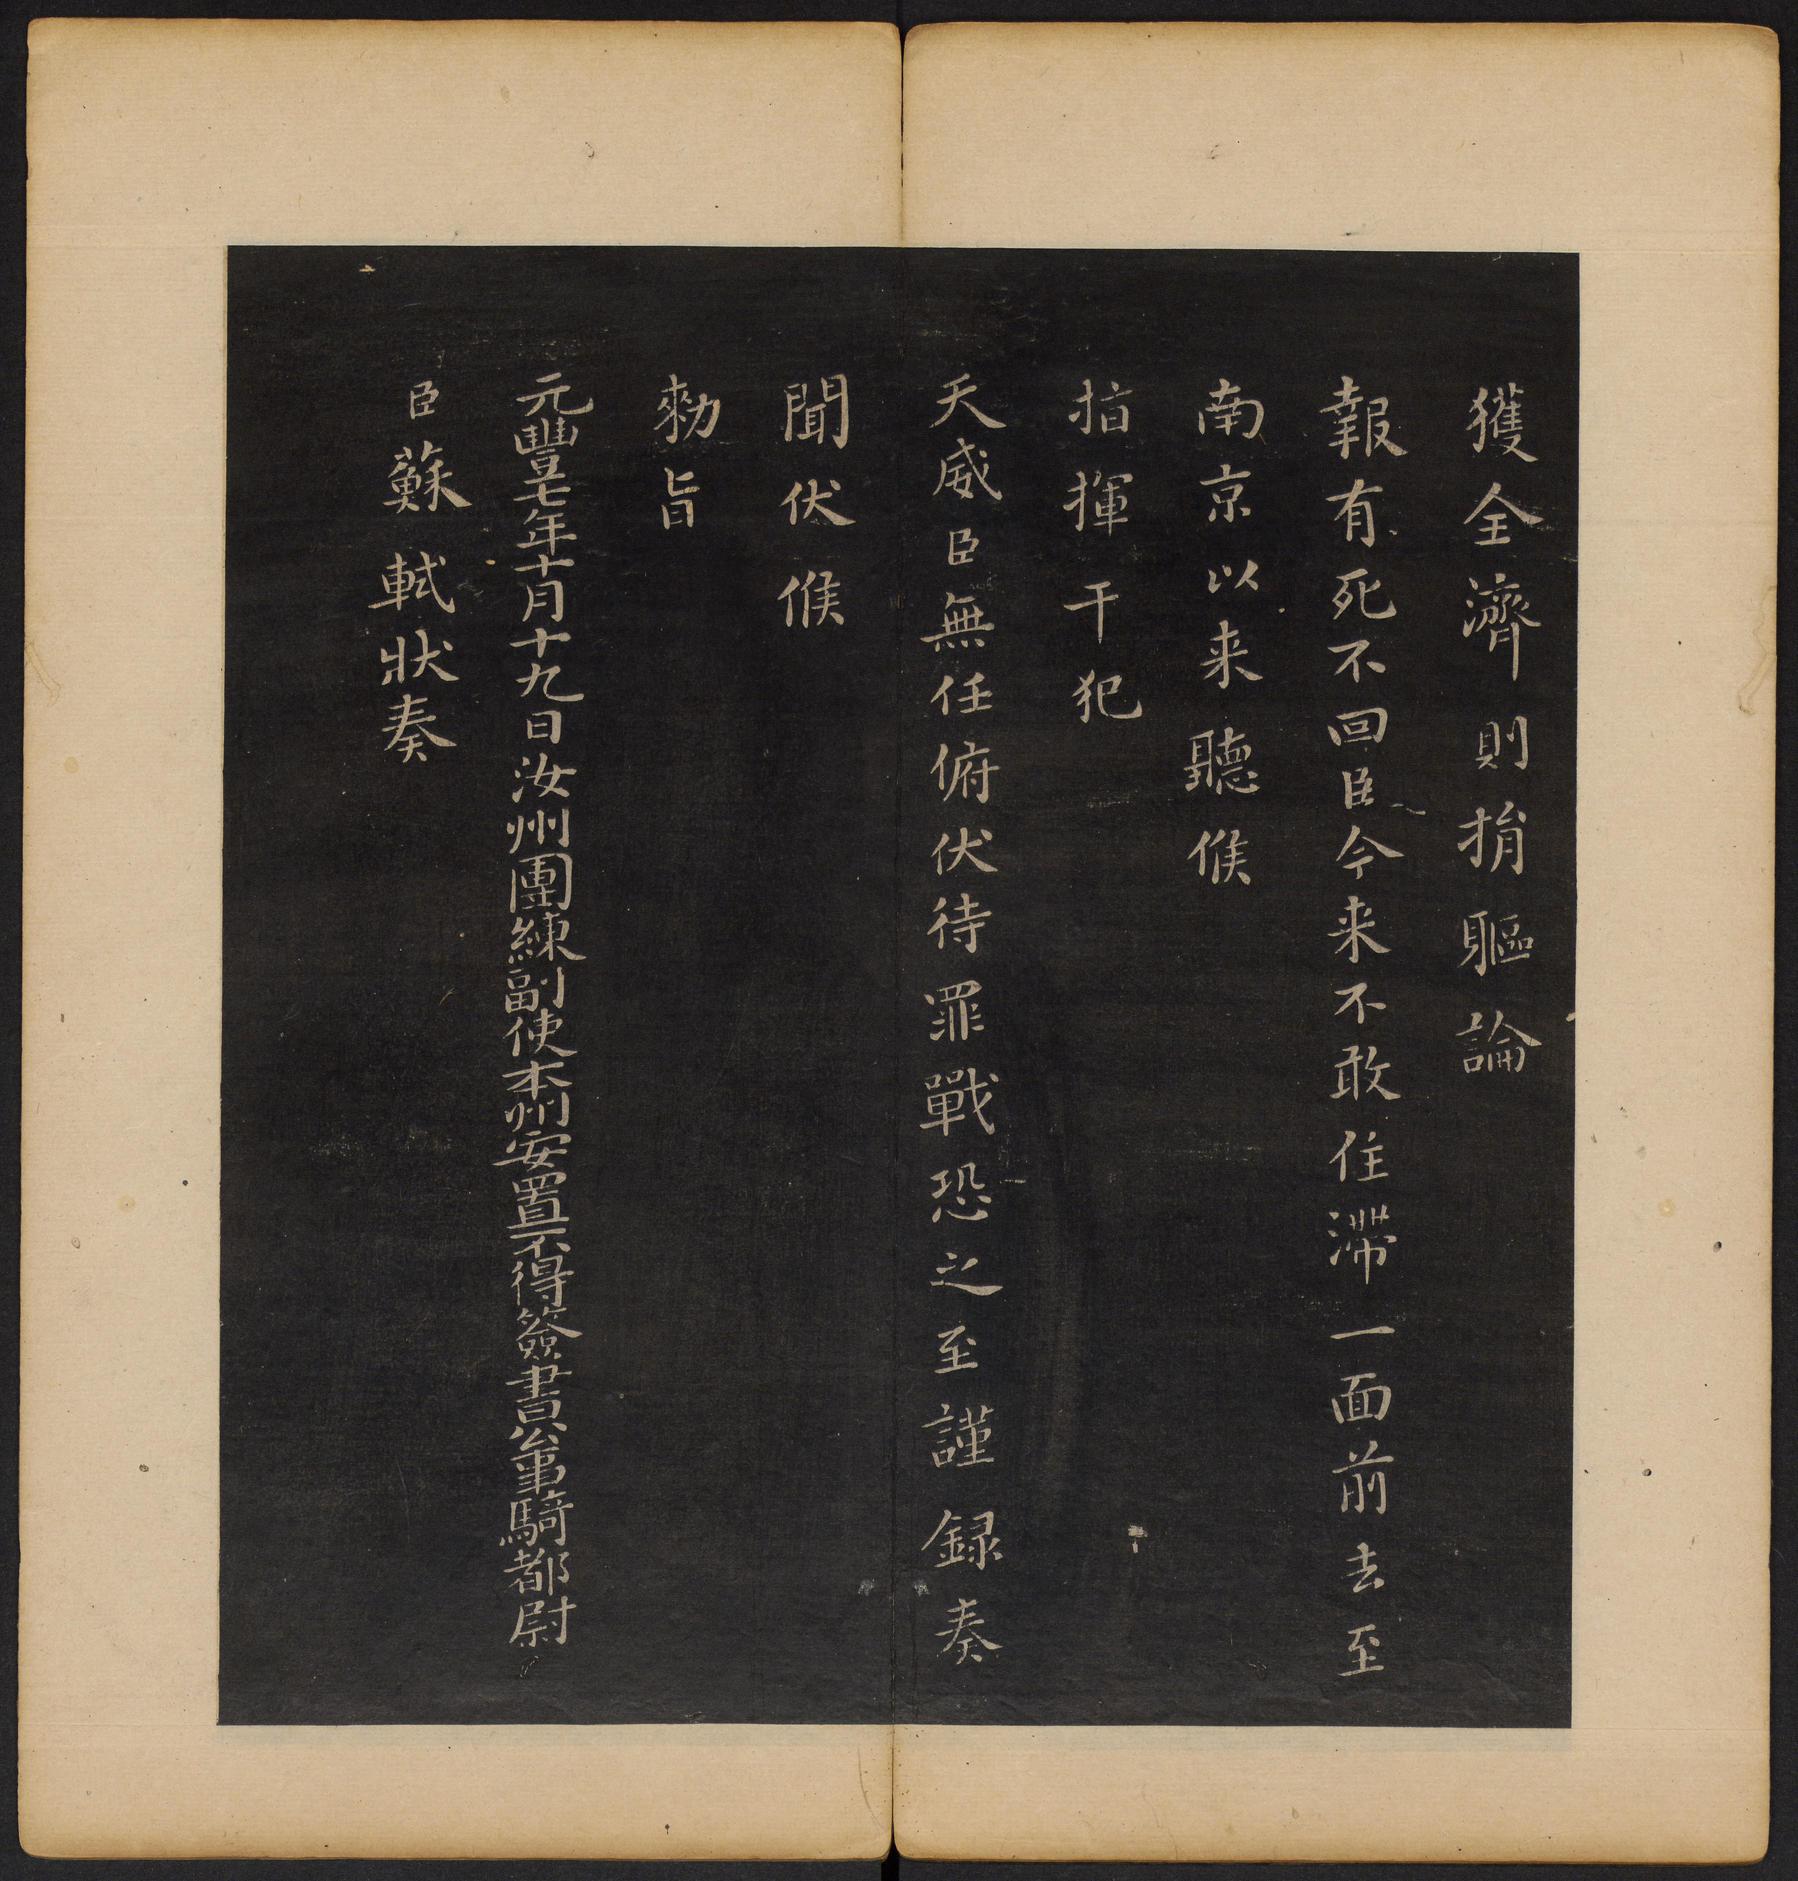 獲全濟則捐軀論
報有死不回臣今来不敢住滯一面前去至
南京以来聽候
指揮干犯
天威臣無任俯伏待罪戰恐之至謹録奏
聞伏候
勑旨
元豐七年十月十九日汝州團練副使本州安置不得簽書公事騎都尉
臣蘇軾狀奏